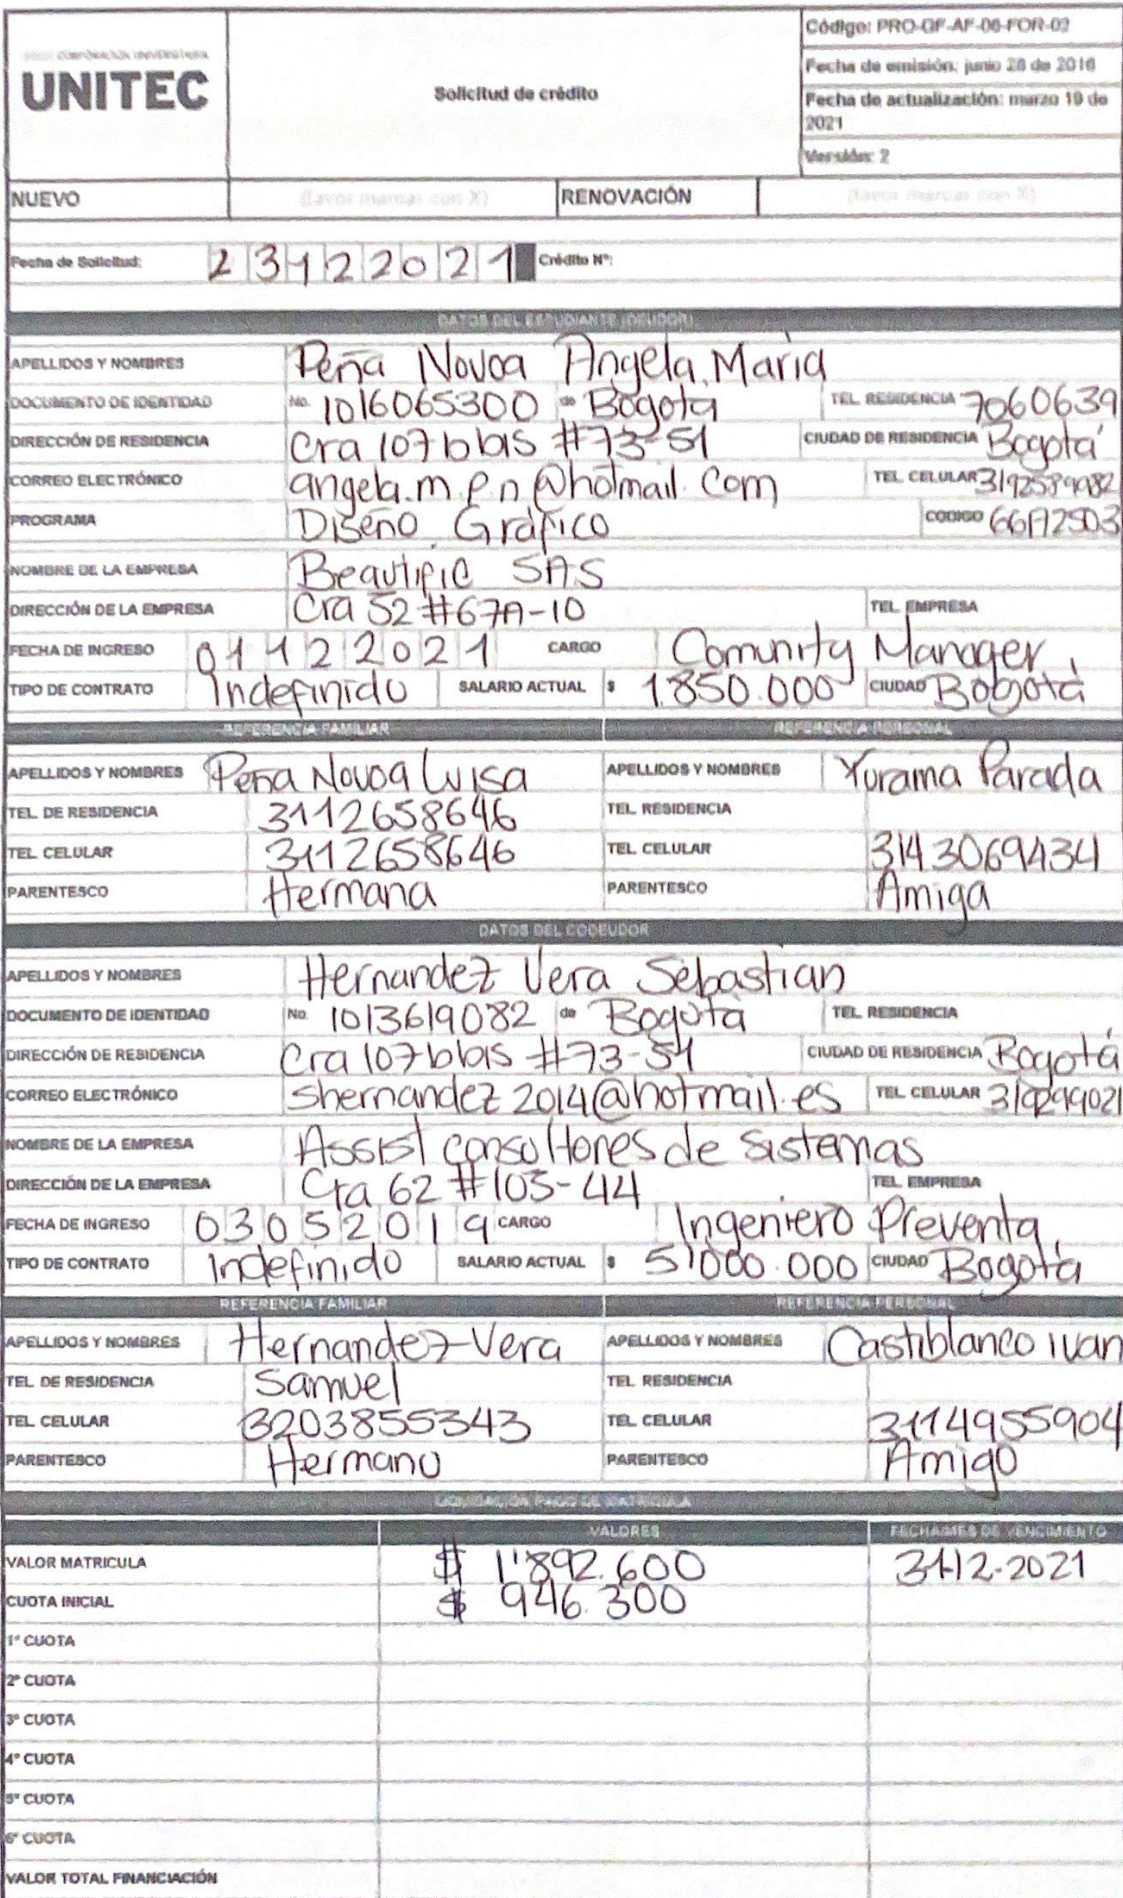 UNITEC
Solicitud de crédito
Código: PRO-GF-AF-06-FOR-02
Fecha de emisión: junio 28 de 2016
Fecha de actualización: marzo 19 de
2021
Versión: 2
NUEVO (favor marcar con X) RENOVACIÓN (favor marcar con X)
Fecha de Solicitud: 23122021 Crédito N°:
DATOS DEL ESTUDIANTE (DEUDOR)
APELLIDOS Y NOMBRES Peña Novoa Angela Maria
DOCUMENTO DE IDENTIDAD No. 1016065300 de Bogotá TEL. RESIDENCIA 7060639
DIRECCIÓN DE RESIDENCIA Cra 107 b bis #73-51 CIUDAD DE RESIDENCIA Bogotá
CORREO ELECTRÓNICO angela.m.p.n@hotmail.com TEL. CELULAR 3192589982
PROGRAMA Diseño Gráfico CODIGO 66172503
NOMBRE DE LA EMPRESA Beautific SAS
DIRECCIÓN DE LA EMPRESA Cra 52 #67A-10 TEL. EMPRESA
FECHA DE INGRESO 01122021 CARGO Comunity Manager
TIPO DE CONTRATO Indefinido SALARIO ACTUAL $ 1.850.000 CIUDAD Bogotá
REFERENCIA FAMILIAR REFERENCIA PERSONAL
APELLIDOS Y NOMBRES Peña Novoa Luisa APELLIDOS Y NOMBRES Yurama Parada
TEL. DE RESIDENCIA 3112658646 TEL. RESIDENCIA
TEL. CELULAR 3112658646 TEL. CELULAR 3143069434
PARENTESCO Hermana PARENTESCO Amiga
DATOS DEL CODEUDOR
APELLIDOS Y NOMBRES Hernandez Vera Sebastian
DOCUMENTO DE IDENTIDAD No. 1013619082 de Bogotá TEL. RESIDENCIA
DIRECCIÓN DE RESIDENCIA Cra 107 b bis #73-51 CIUDAD DE RESIDENCIA Bogotá
CORREO ELECTRÓNICO shernandez2014@hotmail.es TEL. CELULAR
NOMBRE DE LA EMPRESA Assist consultores de sistemas
DIRECCIÓN DE LA EMPRESA Cra 62 #103-44 TEL. EMPRESA
FECHA DE INGRESO 03052019 CARGO Ingeniero Preventa
TIPO DE CONTRATO Indefinido SALARIO ACTUAL $ 5'000.000 CIUDAD Bogotá
REFERENCIA FAMILIAR REFERENCIA PERSONAL
APELLIDOS Y NOMBRES Hernandez Vera APELLIDOS Y NOMBRES Castiblanco ivan
TEL. DE RESIDENCIA Samuel TEL. RESIDENCIA
TEL. CELULAR 3203855343 TEL. CELULAR 3114955904
PARENTESCO Hermano PARENTESCO Amigo
LIQUIDACIÓN PAGO DE MATRICULA
VALORES FECHA/MES DE VENCIMIENTO
VALOR MATRICULA $ 1'892.600 31-12-2021
CUOTA INICIAL $ 946.300
1ª CUOTA
2ª CUOTA
3ª CUOTA
4ª CUOTA
5ª CUOTA
6ª CUOTA
VALOR TOTAL FINANCIACIÓN